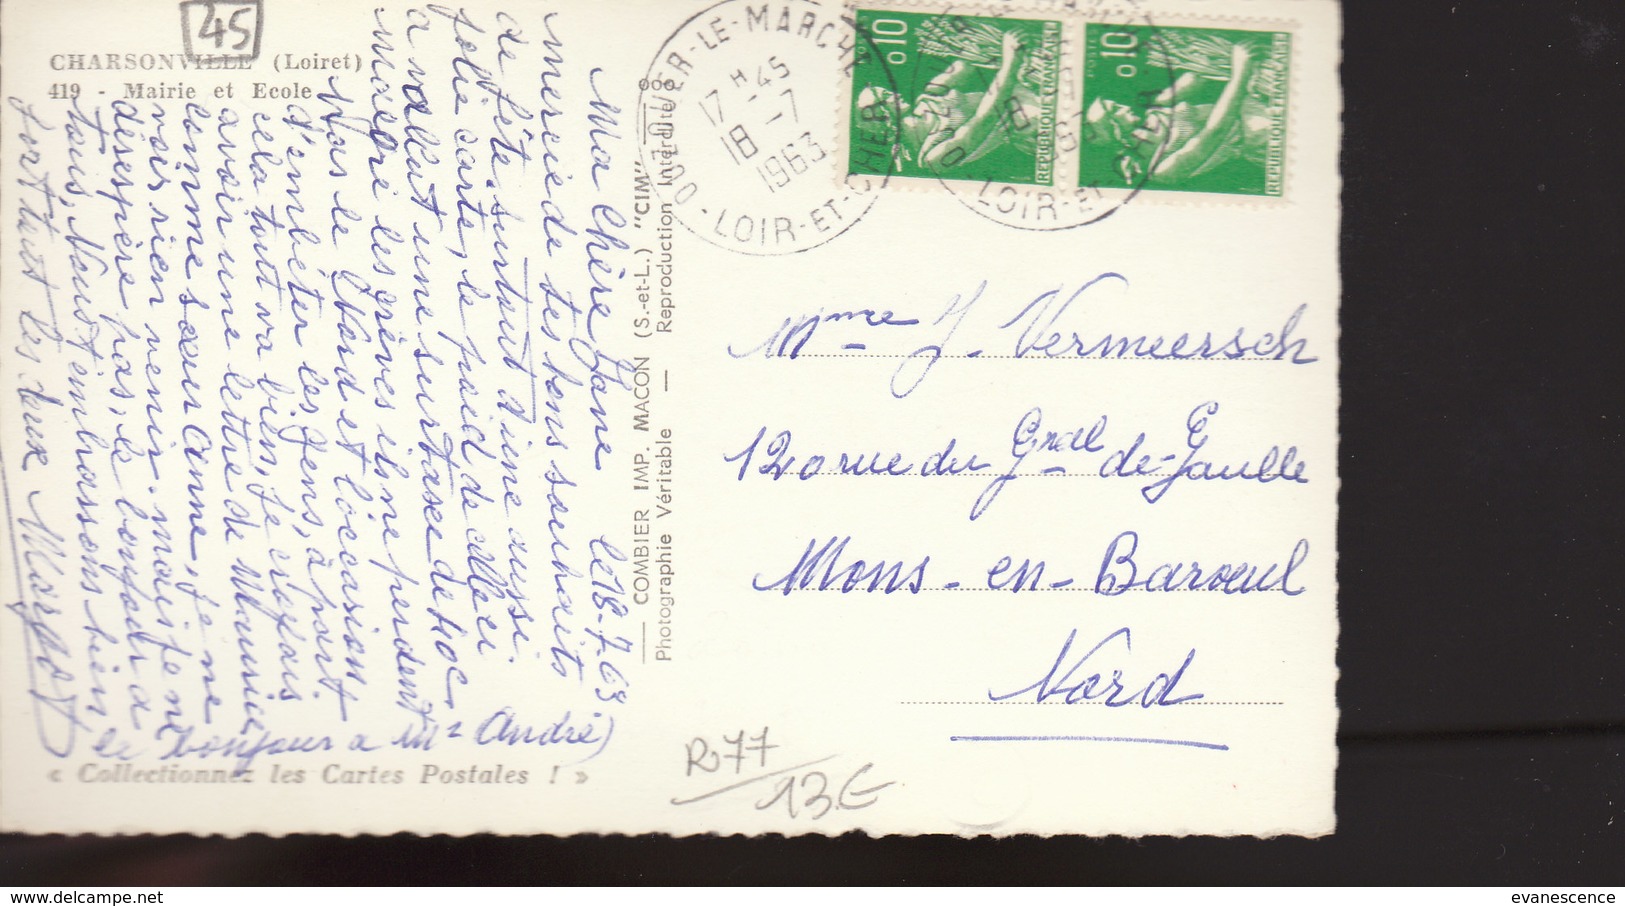 45
CHARSONVILLE (Loiret)
419 - Mairie et Ecole
Ma Chère Jane le 18-7-63
merci de tes bons souhaits
de fête surtout d'une aussi
jolie carte, le poid de celle ci
a vallut une surtaxe de 40c =
macore les grèves ils ne perdent
Nous le Nord et l'occasion
d'embêter les gens, à part
cela tout va bien, Je croyais
avoir une lettre de Maurice
comme sœur Anne, je ne
vois rien venir. mais je ne
désespère pas, le bonjour à
tous, Nous t'embrassons bien
fort tous les deux Margot
(le bonjour a Mr André)
« Collectionnez les Cartes Postales ! »
COMBIER IMP. MACON (S.-et-L.) "CIM"
Photographie Véritable — Reproduction Interdite
OUZOUER-LE-MARCHE
17 H 45
18 - 7
1963
LOIR-ET-CHER
0,10
REPUBLIQUE FRANÇAISE
0,10
REPUBLIQUE FRANÇAISE
LOIR-ET-CHER
Mme J. Vermeersch
120 rue du Gral de-Gaulle
Mons-en-Baroeul
Nord
R 77
13 €
evanescence